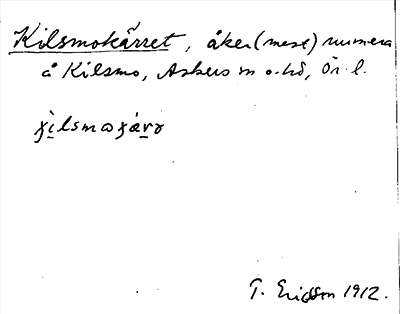 Kilsmokärret, åker (mese) numera
å Kilsmo, Askers sn o. hd, Ör. l.
T. Ericsson 1912.